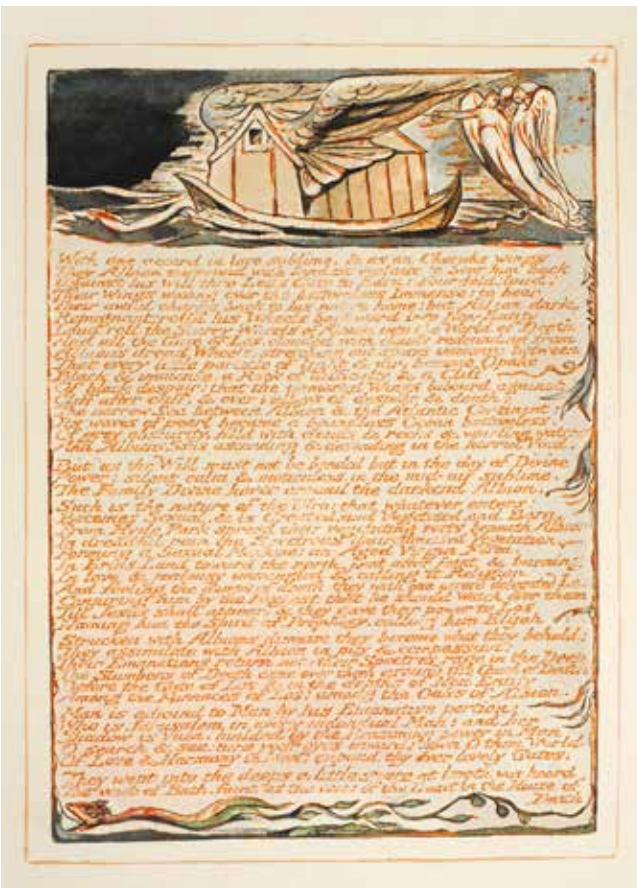 44
With one accord in love sublime, & as on Cherubs wings
They Albion surround with kindest violence to bear him back
Against his will thro Los's Gate to Eden: Four-fold; loud!
Their Wings waving over the bottomless Immense: to bear
Their awful charge back to his native home: but Albion dark,
Repugnant; rolld his Wheels backward into Non-Entity
Loud roll the Starry Wheels of Albion into the World of Death
And all the Gate of Los, clouded with clouds redounding from
Albions dread Wheels, stretching out spaces immense between
That every little particle of light & air, became Opake
Black & immense, a Rock of difficulty & a Cliff
Of black despair; that the immortal Wings labourd against
Cliff after cliff, & over Valleys of despair & death:
The narrow Sea between Albion & the Atlantic Continent:
Its waves of pearl became a boundless Ocean bottomless,
Of grey obscurity, filld with clouds & rocks & whirling waters
And Albions Sons ascending & descending in the horrid Void.
But as the Will must not be bended but in the day of Divine
Power: silent calm & motionless, in the mid-air sublime,
The Family Divine hover around the darkend Albion.
Such is the nature of the Ulro: that whatever enters:
Becomes Sexual, & is Created, and Vegetated, and Born.
From Hyde Park spread their vegetating roots beneath Albion
In dreadful pain the Spectrous Uncircumcised Vegetation.
Forming a Sexual Machine: an Aged Virgin Form.
In Erins Land toward the north, joint after joint & burning
In love & jealousy immingled & calling it Religion
And feeling the damps of death they with one accord delegated Los
Conjuring him by the Highest that he should Watch over them
Till Jesus shall appear: & they gave their power to Los
Naming him the Spirit of Prophecy, calling him Elijah
Strucken with Albions disease they become what they behold;
They assimilate with Albion in pity & compassion;
Their Emanations return not: their Spectres rage in the Deep
The Slumbers of Death came over them around the Couch of Death
Before the Gate of Los & in the depths of Non Entity
Among the Furnaces of Los: among the Oaks of Albion.
Man is adjoind to Man by his Emanative portion:
Who is Jerusalem in every individual Man: and her
Shadow is Vala, builded by the Reasoning power in Man
O search & see: turn your eyes inward: open O thou World
Of Love & Harmony in Man: expand thy ever lovely Gates.
They wept into the deeps a little space at length was heard
The voice of Bath, faint as the voice of the Dead in the House of
Death